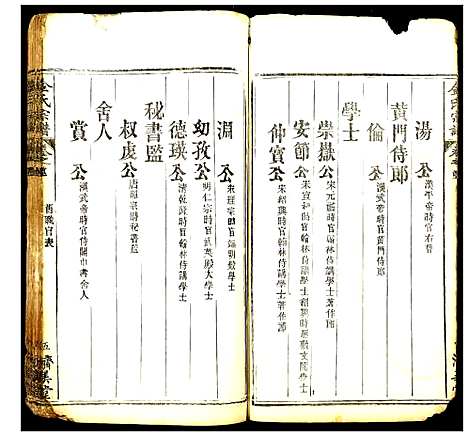 湯公 漢平帝時官右曹
黃門侍郎
倫公 漢武帝時官黃門侍郎
學士
崇嶽公 宋元祐時官翰林侍講學士著作郎
安節公 宋宣和時官翰林侍講學士
仲寶公 宋紹興時官翰林侍講學士著作郎
淵公 宋理宗時官端明殿學士
幼孜公 明仁宗時官武英殿大學士
德瑛公 清乾隆時官翰林侍講學士
秘書監
叔虔公
舍人
賞公 漢武帝時官侍閣中書舍人
舊職官表
五
金氏宗譜